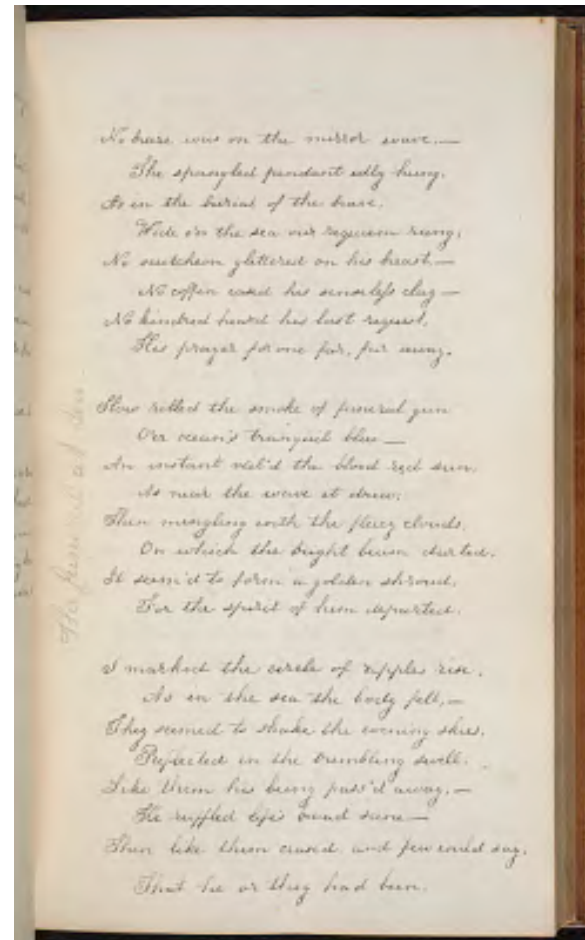 No breeze was on the mirror wave.—
The spangled pendant idly hung,
As in the burial of the brave,
Wide o'er the sea our requiem rung,
No scutcheon glittered on his breast—
No coffin cased his senseless clay—
No kindred heard his last request,
His prayer for one far, far away.
Slow rolled the smoke of funeral gun
O'er ocean's tranquil blue—
An instant veil'd the blood red sun,
As near the wave it drew;
Then mingling with the fleecy clouds,
On which the bright beam darted,
It seem'd to form a golden shroud,
For the spirit of him departed.
I marked the circle of ripples rise,
As in the sea the body fell,—
They seemed to shake the evening skies,
Reflected in the trembling swell.
Like them his being pass'd away,—
He ruffled life's scene—
Then like them ceased, and few could say,
That he or they had been.
The funeral at Sea